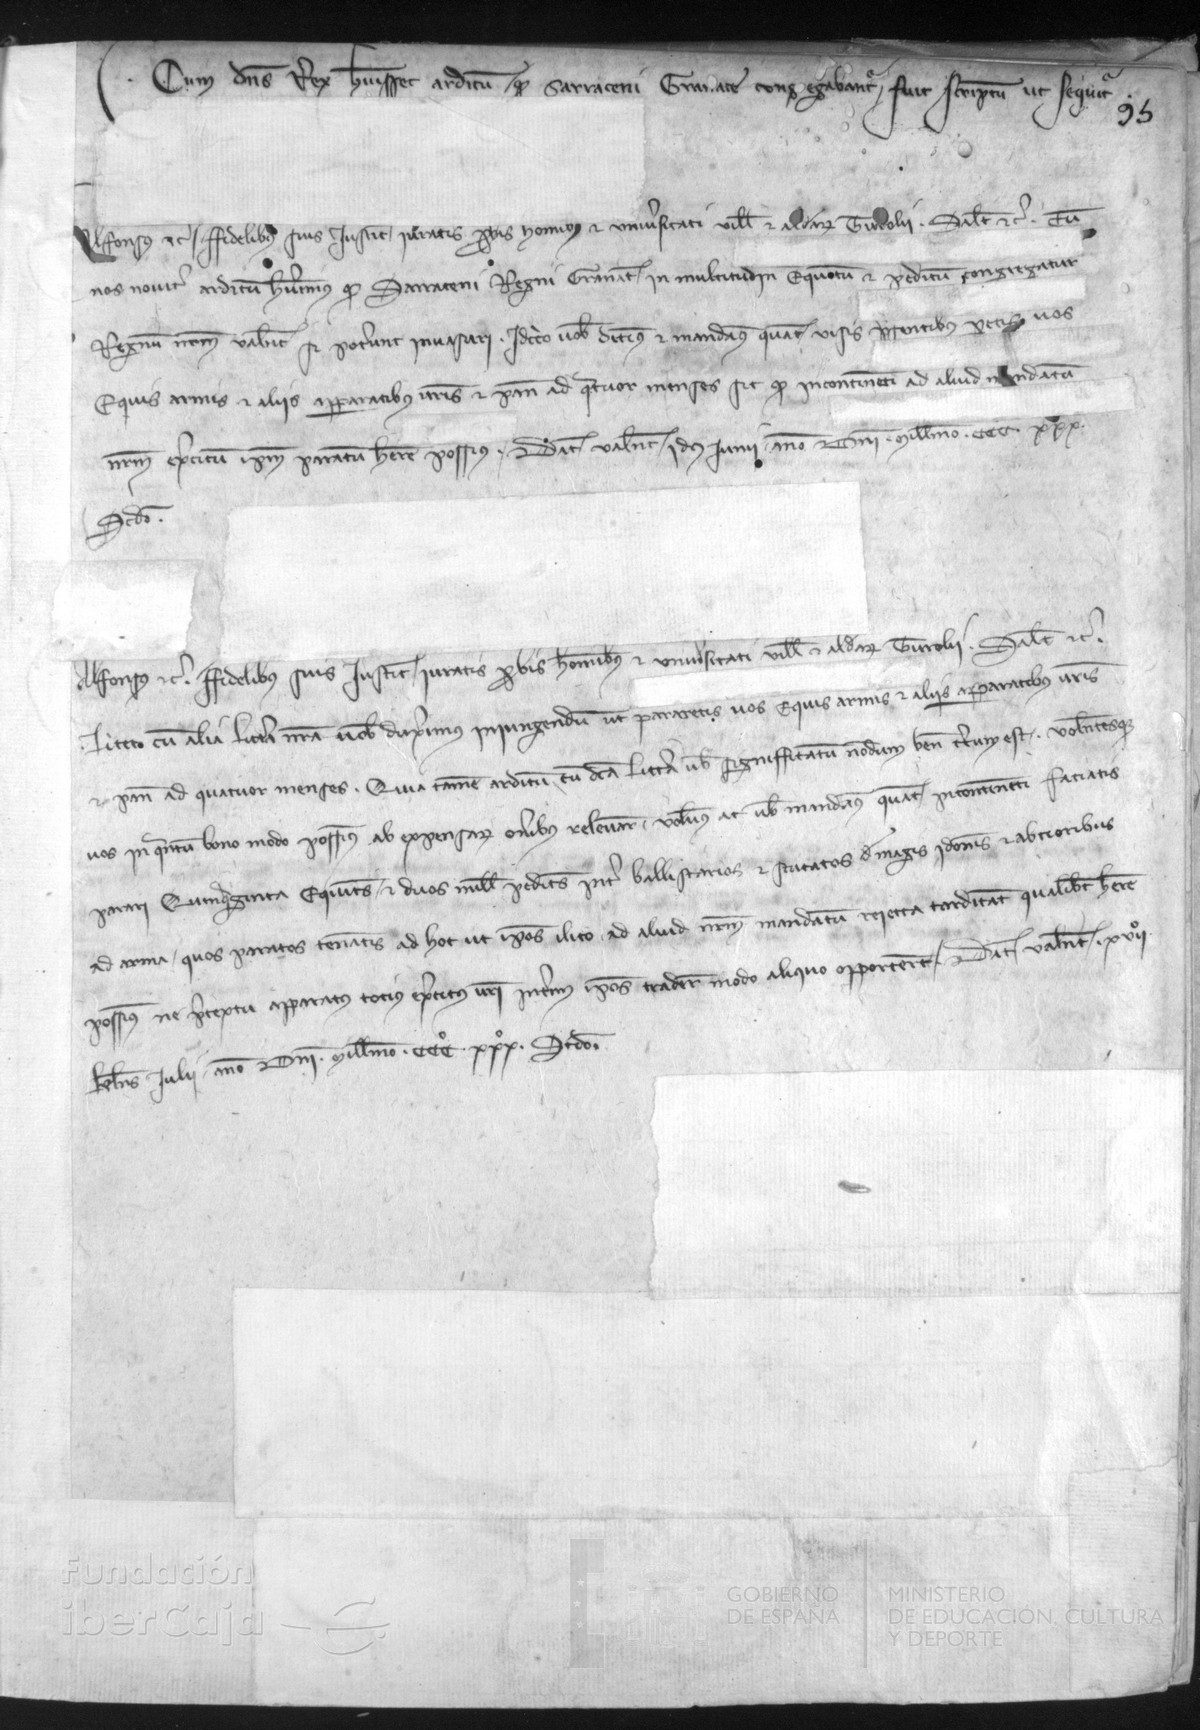 Cum dns Rex huisset arditu qd Sarraceni Granate congregabant fuit scriptu ut sequit
95
Alfonsus etc. ffidelibus suis Justic iuratis probis hominibus et universitati ville et aldear Turolii. Salt etc. Cu
nos novit arditu huerimus qd Sarraceni Regni Granat in multitudin Equotu et peditu congregatur
Regnu nrm valent si poterunt invasuri. Idcco vob dicimus et mandamus quat visis presentibus paretis vos
Equis armis et aliis apparatibus vris et pan ad quatuor menses sic qd incontineti ad aliud mandatu
nrm exercitu ipm paratu here possimus. Dat Valent idus Junii anno Dni. millmo. CCC. xxx.
Scdo.
Alfonsus etc. ffidelibus suis Justic iuratis probis hominibus et universitati ville et aldear Turolii. Salt etc.
Licet cu alia littera nra vob duxerimus iniungendu ut pararetis vos Equis armis et aliis apparatibus vris
et pan ad quatuor menses. Quia tamen arditu cu dca littera vob significatu nondum ben certum est. volentesque
vos in quantu bono modo possimus ab expensar oneribus relevar, volumus ac vob mandamus quat incontineti faciatis
parari Quinquaginta Equites et duos mill pedites inter ballistarios et scutatos de magis idoneis et abtioribus
ad arma, quos paratos teneatis ad hoc ut ipos ilico ad aliud nrm mandatu reiecta tarditat qualibet here
possimus ne pretextu apparatus totius exercitus vri interim ipos tradere modo aliquo opporteret. Dat Valent xvii
kalns Julii anno Dni. millmo. CCC. xxx. Scdo.
Fundación
iberCaja
GOBIERNO
DE ESPAÑA
MINISTERIO
DE EDUCACIÓN, CULTURA
Y DEPORTE